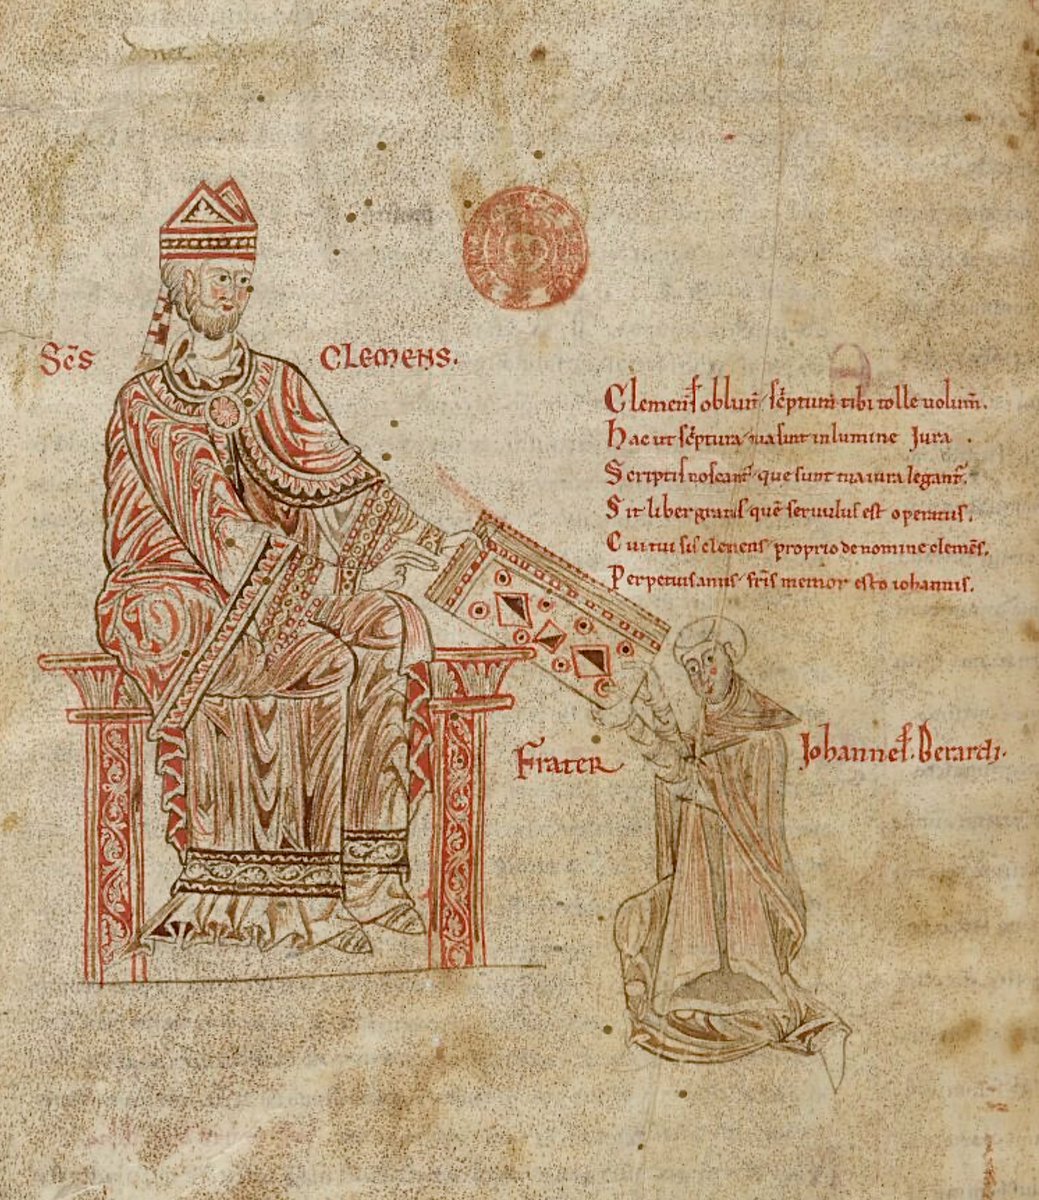 Sc̄s Clemens.
Clemens oblatū sc̄ptum tibi tolle uolum̄.
Hac ut sc̄ptura ua sunt in lumine Jura.
Scriptis noscant̄ que sunt maiura legant̄.
Sit liber gratus quē seruulus est operatus.
Cui tu sis clemens proprio de nomine clemēs.
Perpetuis annis fr̄is memor esto iohannis.
Frater Johannes. Berardi.